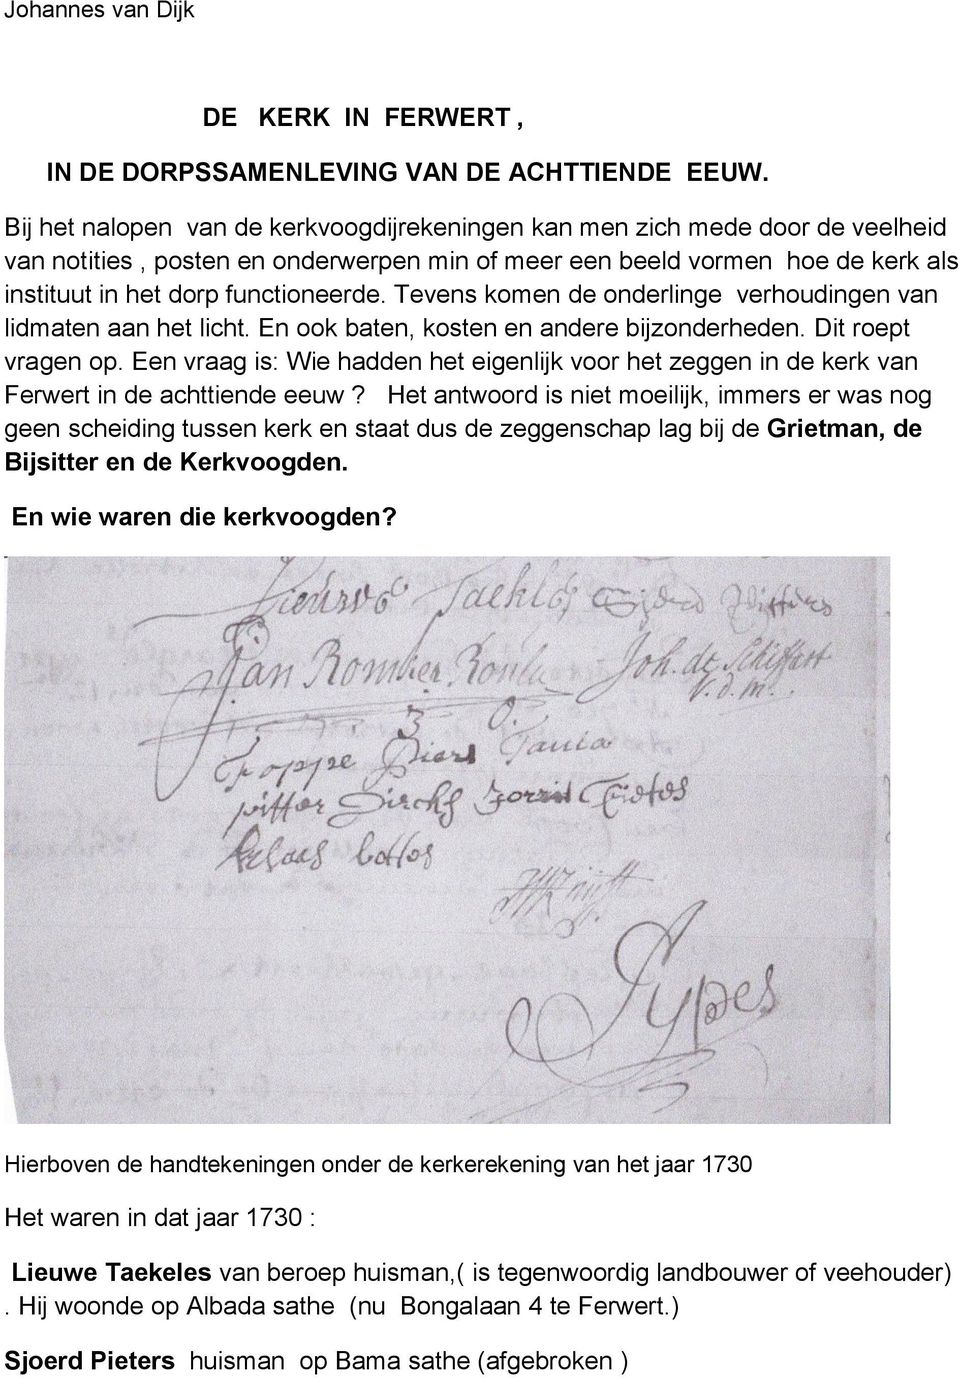 Johannes van Dijk
DE KERK IN FERWERT ,
IN DE DORPSSAMENLEVING VAN DE ACHTTIENDE EEUW.
Bij het nalopen van de kerkvoogdijrekeningen kan men zich mede door de veelheid
van notities , posten en onderwerpen min of meer een beeld vormen hoe de kerk als
instituut in het dorp functioneerde. Tevens komen de onderlinge verhoudingen van
lidmaten aan het licht. En ook baten, kosten en andere bijzonderheden. Dit roept
vragen op. Een vraag is: Wie hadden het eigenlijk voor het zeggen in de kerk van
Ferwert in de achttiende eeuw ? Het antwoord is niet moeilijk, immers er was nog
geen scheiding tussen kerk en staat dus de zeggenschap lag bij de Grietman, de
Bijsitter en de Kerkvoogden.
En wie waren die kerkvoogden?
Taekles Sjoerd Pitters
Jan Romker Joh. de Schiffart
V. d. m.
Foppe Piers Fania
pitter Dircks Gorrit
Klaas bottes
Sypes
Hierboven de handtekeningen onder de kerkerekening van het jaar 1730
Het waren in dat jaar 1730 :
Lieuwe Taekeles van beroep huisman,( is tegenwoordig landbouwer of veehouder)
. Hij woonde op Albada sathe (nu Bongalaan 4 te Ferwert.)
Sjoerd Pieters huisman op Bama sathe (afgebroken )